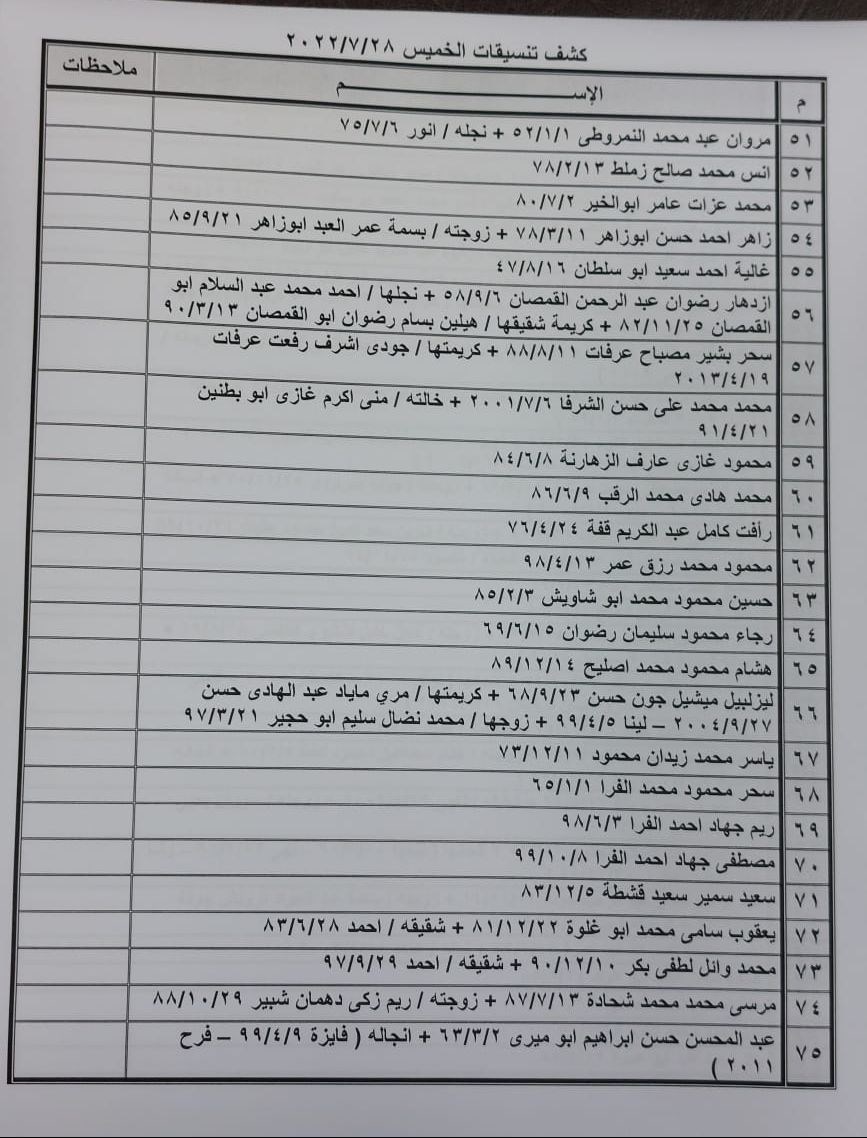 كشف تنسيقات الخميس ٢٠٢٢/٧/٢٨
م الإســـــــــــــــم ملاحظات
٥١ مروان عبد محمد النمروطى ٥٢/١/١ + نجله / انور ٧٥/٧/٦
٥٢ انس محمد صالح زملط ٧٨/٢/١٣
٥٣ محمد عزات عامر ابوالخير ٨٠/٧/٢
٥٤ زاهر احمد حسن ابوزاهر ٧٨/٣/١١ + زوجته / بسمة عمر العبد ابوزاهر ٨٥/٩/٢١
٥٥ غالية احمد سعيد ابو سلطان ٤٧/٨/١٦
٥٦ ازدهار رضوان عبد الرحمن القمصان ٥٨/٩/٦ + نجلها / احمد محمد عبد السلام ابو
القمصان ٨٢/١١/٢٥ + كريمة شقيقها / هيلين بسام رضوان ابو القمصان ٩٠/٣/١٣
٥٧ سحر بشير مصباح عرفات ٨٨/٨/١١ + كريمتها / جودى اشرف رفعت عرفات
٢٠١٣/٤/١٩
٥٨ محمد محمد على حسن الشرفا ٢٠٠١/٧/٦ + خالته / منى اكرم غازى ابو بطنين
٩١/٤/٢١
٥٩ محمود غازى عارف الزهارنة ٨٤/٦/٨
٦٠ محمد هادى محمد الرقب ٨٦/٦/٩
٦١ رأفت كامل عبد الكريم قفة ٧٦/٤/٢٤
٦٢ محمود محمد رزق عمر ٩٨/٤/١٣
٦٣ حسين محمود محمد ابو شاويش ٨٥/٢/٣
٦٤ رجاء محمود سليمان رضوان ٦٩/٦/١٥
٦٥ هشام محمود محمد اصليح ٨٩/١٢/١٤
٦٦ ليزلبيل ميشيل جون حسن ٦٨/٩/٢٣ + كريمتها / مري ماياد عبد الهادى حسن
٢٠٠٤/٩/٢٧ – لينا ٩٩/٤/٥ + زوجها / محمد نضال سليم ابو حجير ٩٧/٣/٢١
٦٧ ياسر محمد زيدان محمود ٧٣/١٢/١١
٦٨ سحر محمود محمد الفرا ٦٥/١/١
٦٩ ريم جهاد احمد الفرا ٩٨/٦/٣
٧٠ مصطفى جهاد احمد الفرا ٩٩/١٠/٨
٧١ سعيد سمير سعيد قشطة ٨٣/١٢/٥
٧٢ يعقوب سامى محمد ابو غلوة ٨١/١٢/٢٢ + شقيقه / احمد ٨٣/٦/٢٨
٧٣ محمد وائل لطفى بكر ٩٠/١٢/١٠ + شقيقه / احمد ٩٧/٩/٢٩
٧٤ مرسى محمد محمد شحادة ٨٧/٧/١٣ + زوجته / ريم زكى دهمان شبير ٨٨/١٠/٢٩
٧٥ عبد المحسن حسن ابراهيم ابو ميرى ٦٣/٣/٢ + انجاله ( فايزة ٩٩/٤/٩ – فرح
٢٠١١ )